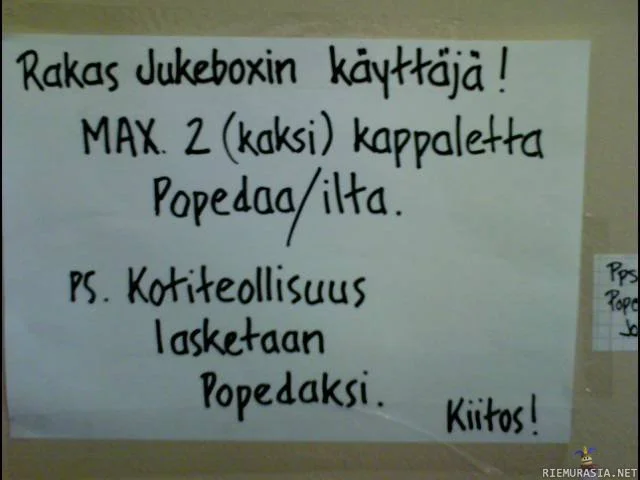 Rakas Jukeboxin käyttäjä!
MAX. 2 (kaksi) kappaletta
Popedaa/ilta.
PS. Kotiteollisuus
lasketaan
Popedaksi.
Kiitos!
Pps
Pope
Jo
RIEMURASIA.NET